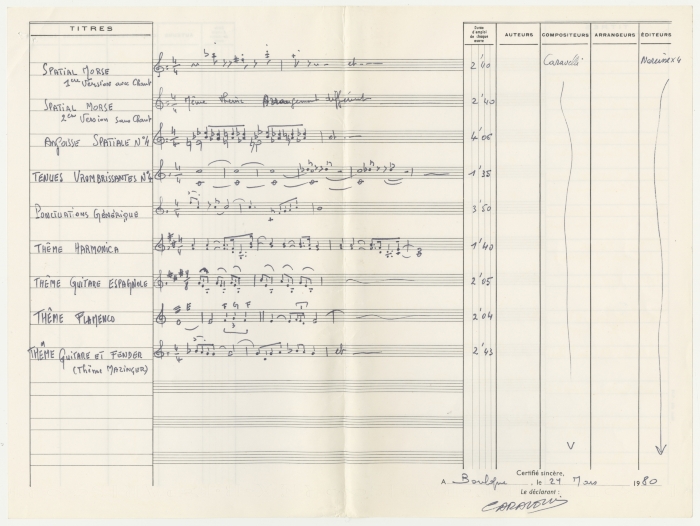 TITRES
Durée d'emploi de chaque œuvre
AUTEURS
COMPOSITEURS
ARRANGEURS
ÉDITEURS
SPATIAL MORSE
1ère Version avec Chant
et
2'40
Caravelli
SPATIAL MORSE
2ème Version sans Chant
Même thème Arrangement différent
2'40
ANGOISSE SPATIALE N°4
et
4'05
TENUES VROMBRISSANTES N°4
1'35
PONCTUATIONS GÉNÉRIQUE
3'50
THÈME HARMONICA
1'40
THÈME GUITARE ESPAGNOLE
2'05
THÈME FLAMENCO
E F G F
3
2'04
THÈME GUITARE ET FENDER
(Thème MAZINGER)
et
2'43
Certifié sincère,
A Boulogne, le 27 Mars 1980
Le déclarant :
CARAVELLI